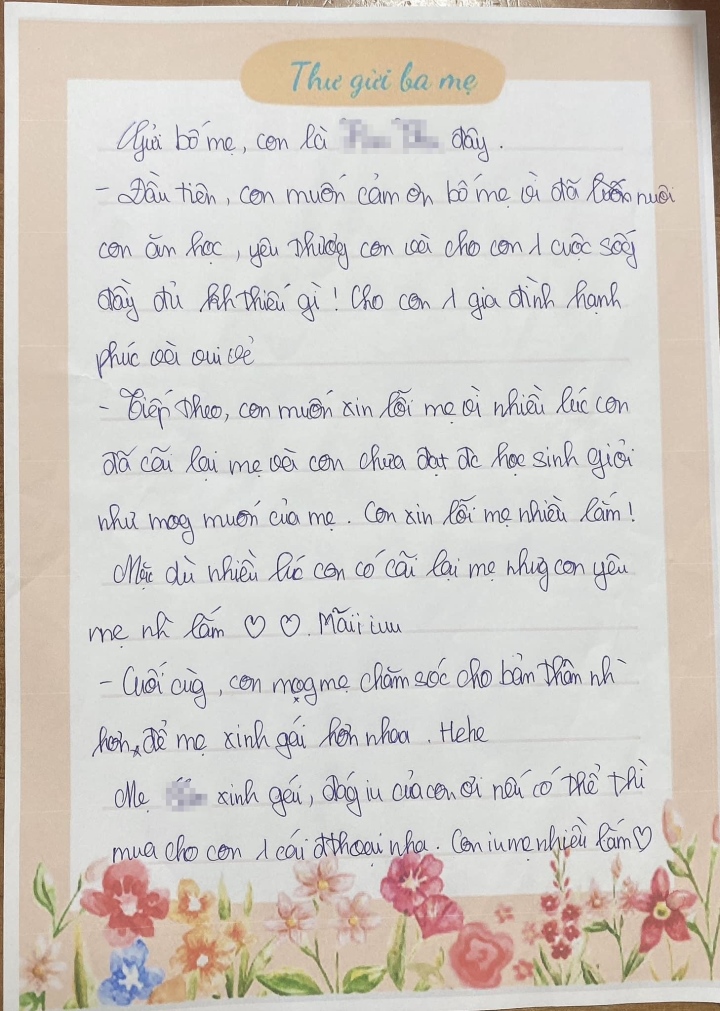 Thư gửi ba mẹ
Gửi bố mẹ, con là đây.
- Đầu tiên, con muốn cảm ơn bố mẹ vì đã luôn nuôi
con ăn học, yêu thương con và cho con 1 cuộc sốg
đầy đủ kh thiếu gì! Cho con 1 gia đình hạnh
phúc và vui vẻ
- Tiếp theo, con muốn xin lỗi mẹ vì nhiều lúc con
đã cãi lại mẹ và con chưa đạt đc học sinh giỏi
như mog muốn của mẹ. Con xin lỗi mẹ nhiều lắm!
Mặc dù nhiều lúc con có cãi lại mẹ nhưg con yêu
mẹ nh` lắm ♡ ♡. Mãii iuu
- Cuối cùg, con mog mẹ chăm sóc cho bản thân nh`
hơn, để mẹ xinh gái hơn nhaa. Hehe
Mẹ xinh gái, đág iu của con ơi nếu có thể thì
mua cho con 1 cái đthoại nha. Con iu mẹ nhiều lắm♡